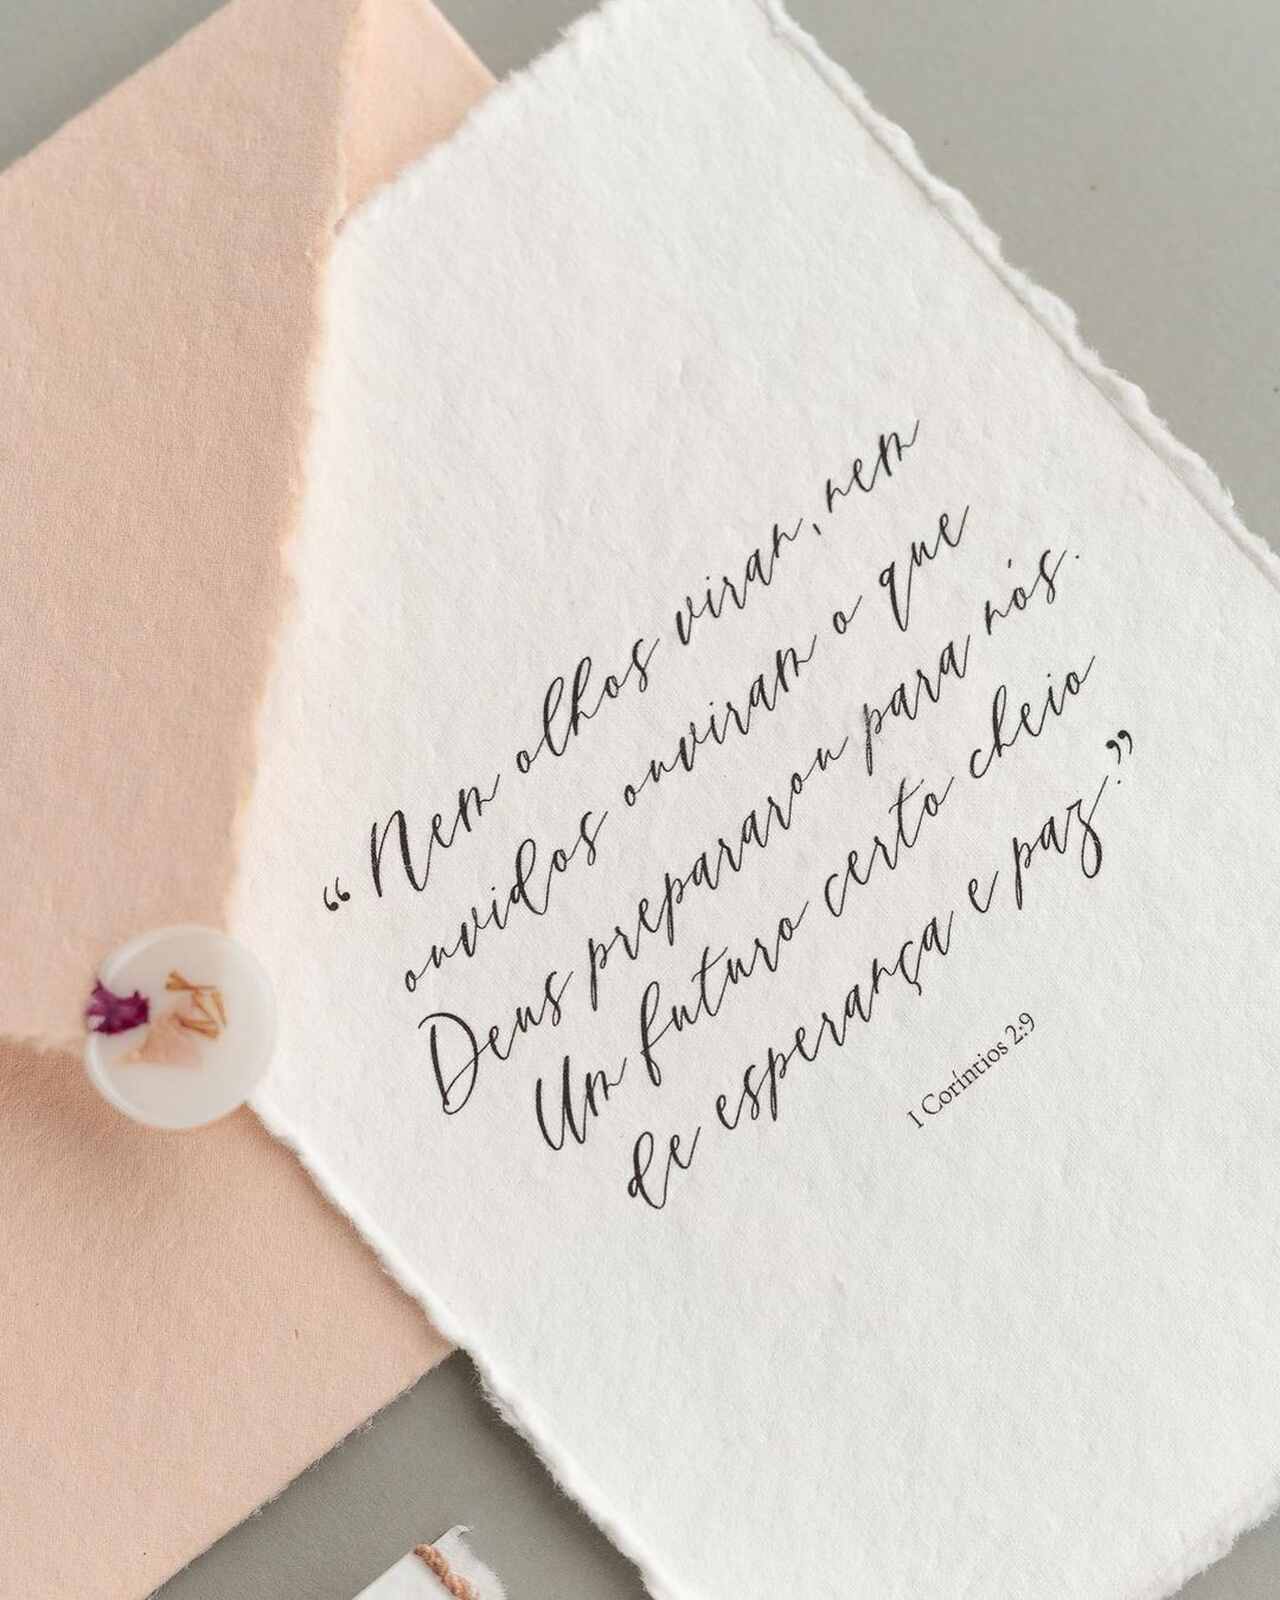 “Nem olhos viran, nem
ouvidos ouviram o que
Deus prepararou para nós.
Um futuro certo cheio
de esperança e paz.”
1 Coríntios 2:9